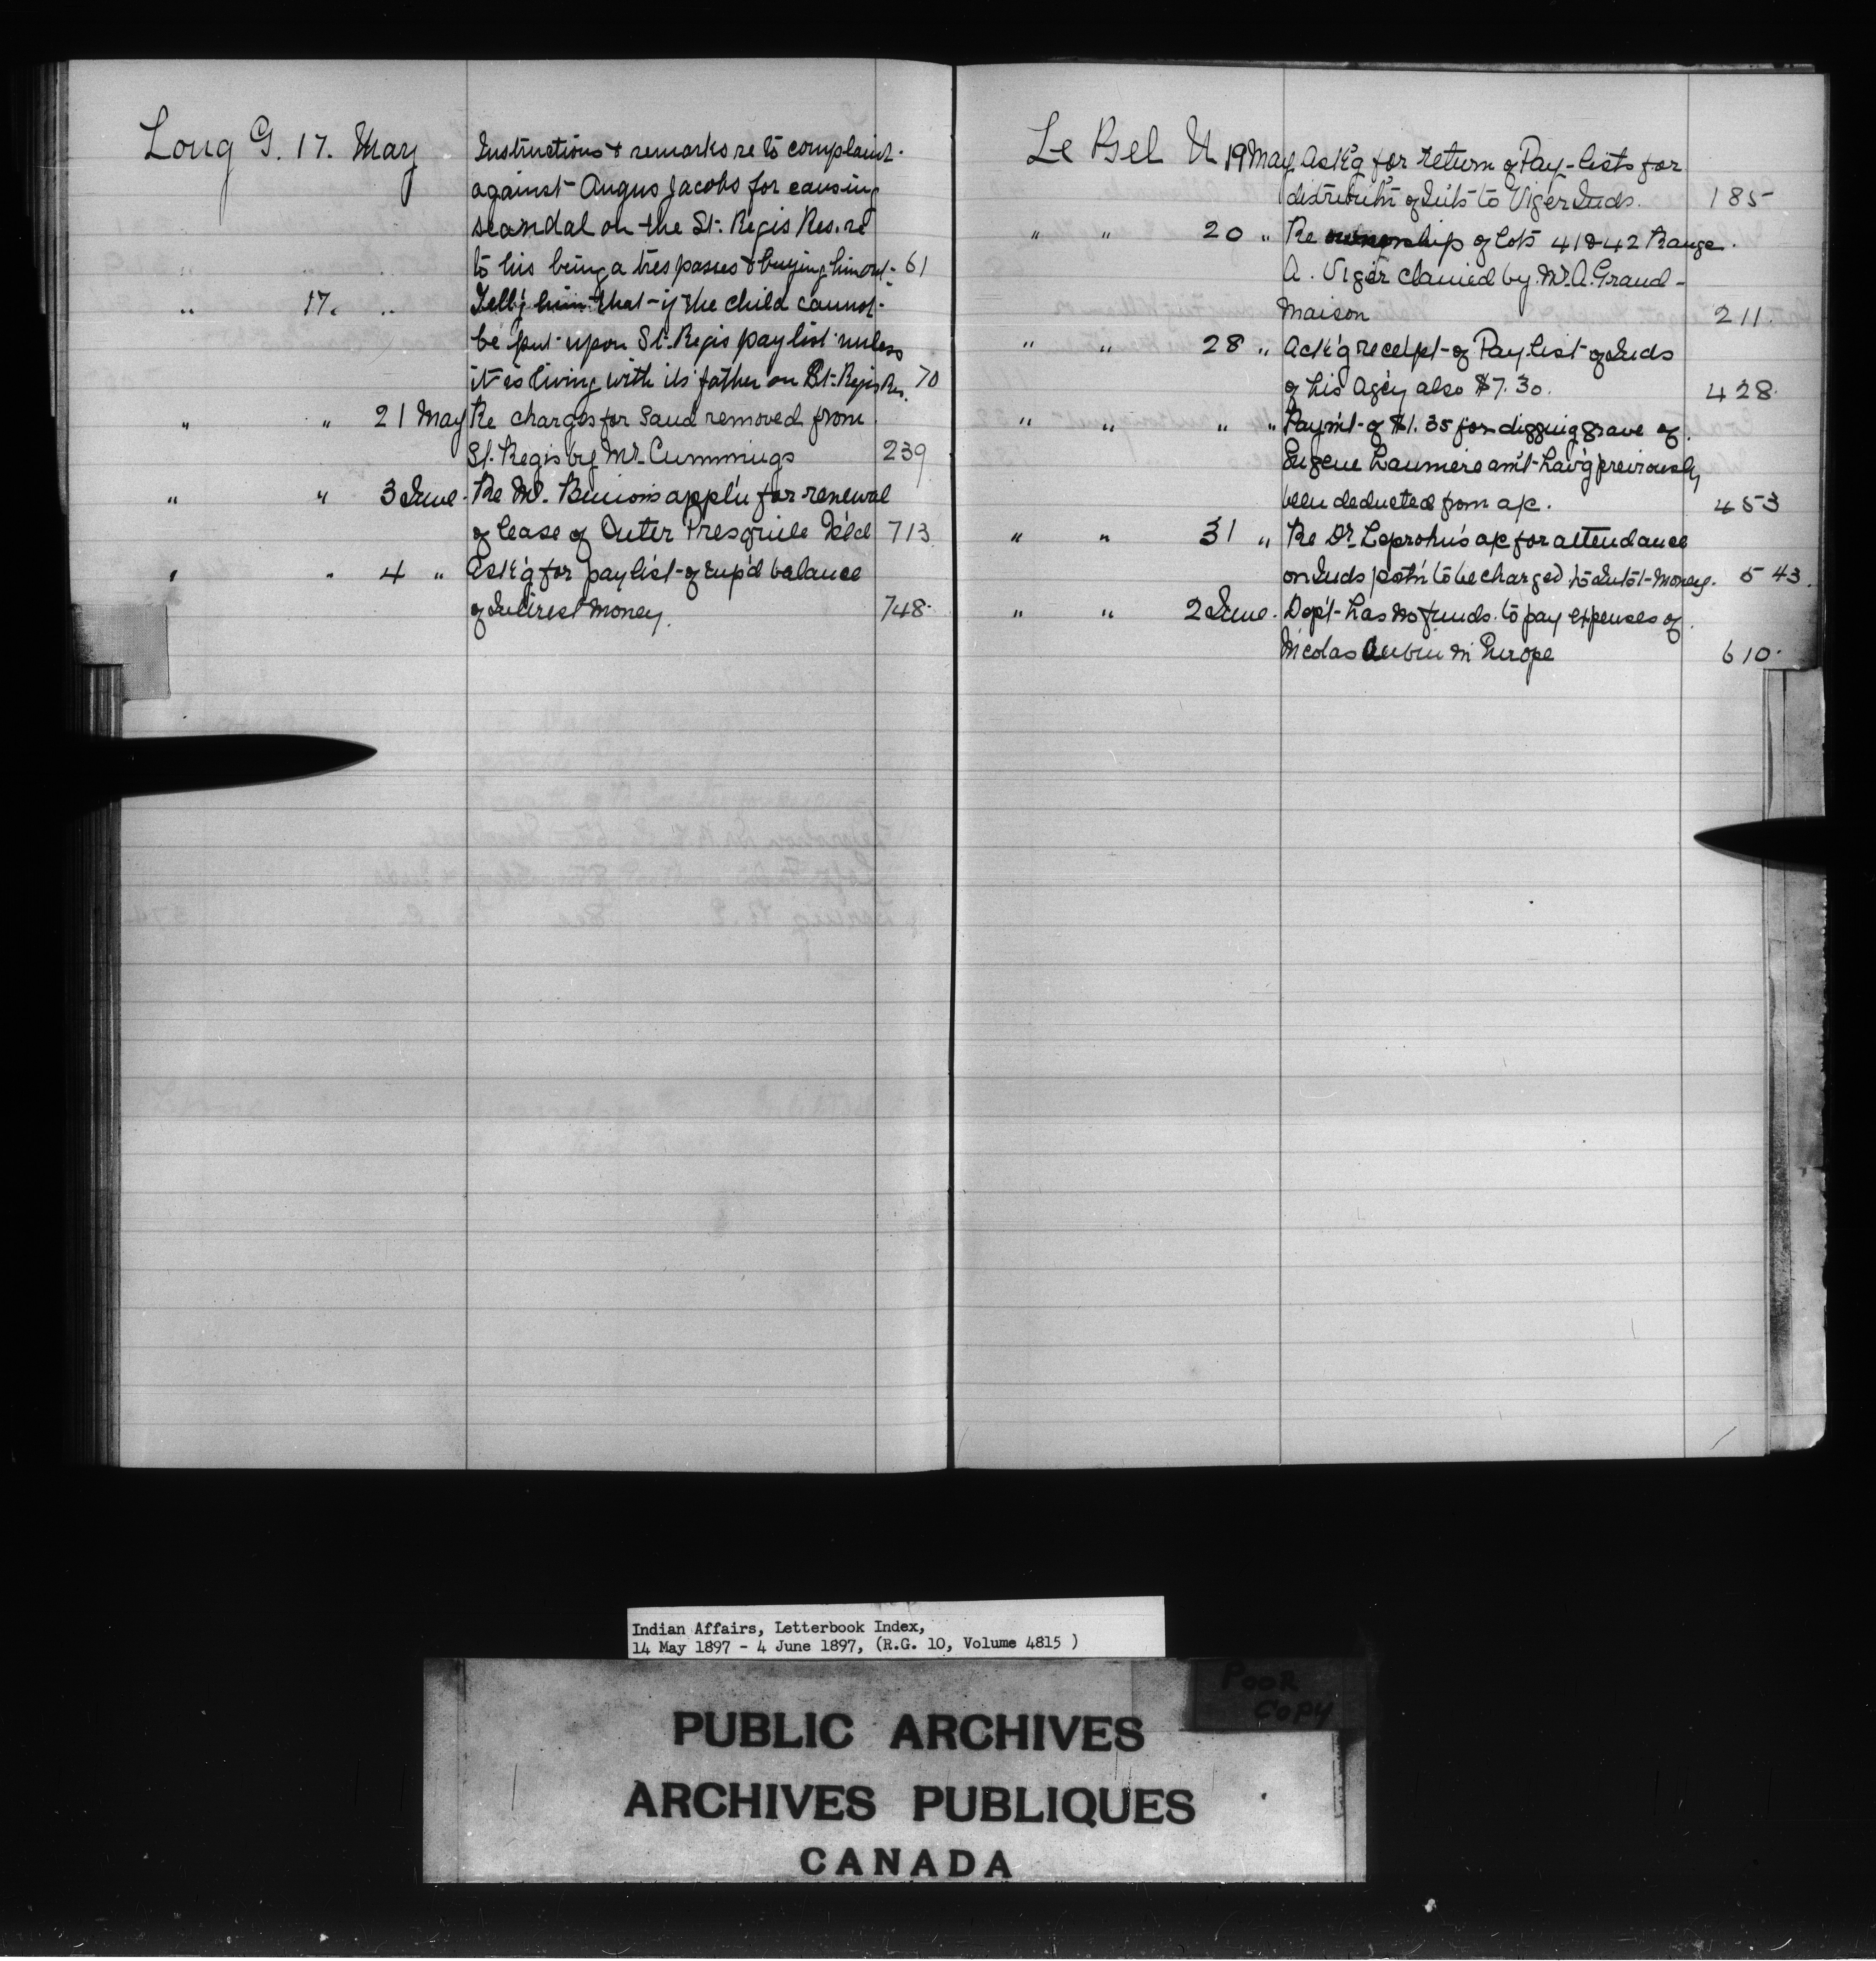 Long G. 17. May Instructions & remarks re to complaint.
against Angus Jacobs for causing
scandal on the St. Regis Res. re
to his being a trespasser & buying him out. 61
" 17. " Tell'g him that if the child cannot
be put upon St. Regis pay list unless
it is living with its father on St. Regis Res. 70
" " 21 May Re charges for sand removed from
St. Regis by Mr. Cummings 239
" " 3 June. Re M. appl'n for renewal
of lease of Outer Presquile Isl'd 713
" " 4 " Ask'g for pay list of balance
of Interest Money. 748.
Le Bel U 19 May Ask'g for return of Pay-lists for
distribut'n of Int's to Viger Inds. 185
" " 20 " Re ownership of lots 41 & 42 Range
A. Viger claimed by Mr. A. Grand-
maison 211.
" " 28 " Ack'g receipt of Pay list of Inds
of his Ag'cy also $7.30. 428.
" " " " Paym't of $1.35 for digging grave of
Eugene Laumiere am't hav'g previously
been deducted from a/c. 453
" " 31 " Re Dr. Leprohn's a/c for attendance
on Inds to be charged to Int's't Money. 543.
" " 2 June. Dep't has no funds to pay expenses of
Nicolas Aubin in Europe 610.
Indian Affairs, Letterbook Index,
14 May 1897 - 4 June 1897, (R.G. 10, Volume 4815 )
POOR
COPY
PUBLIC ARCHIVES
ARCHIVES PUBLIQUES
CANADA